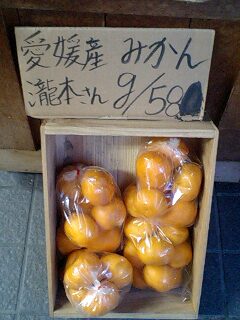 愛媛産 みかん
瀧本さん g/58